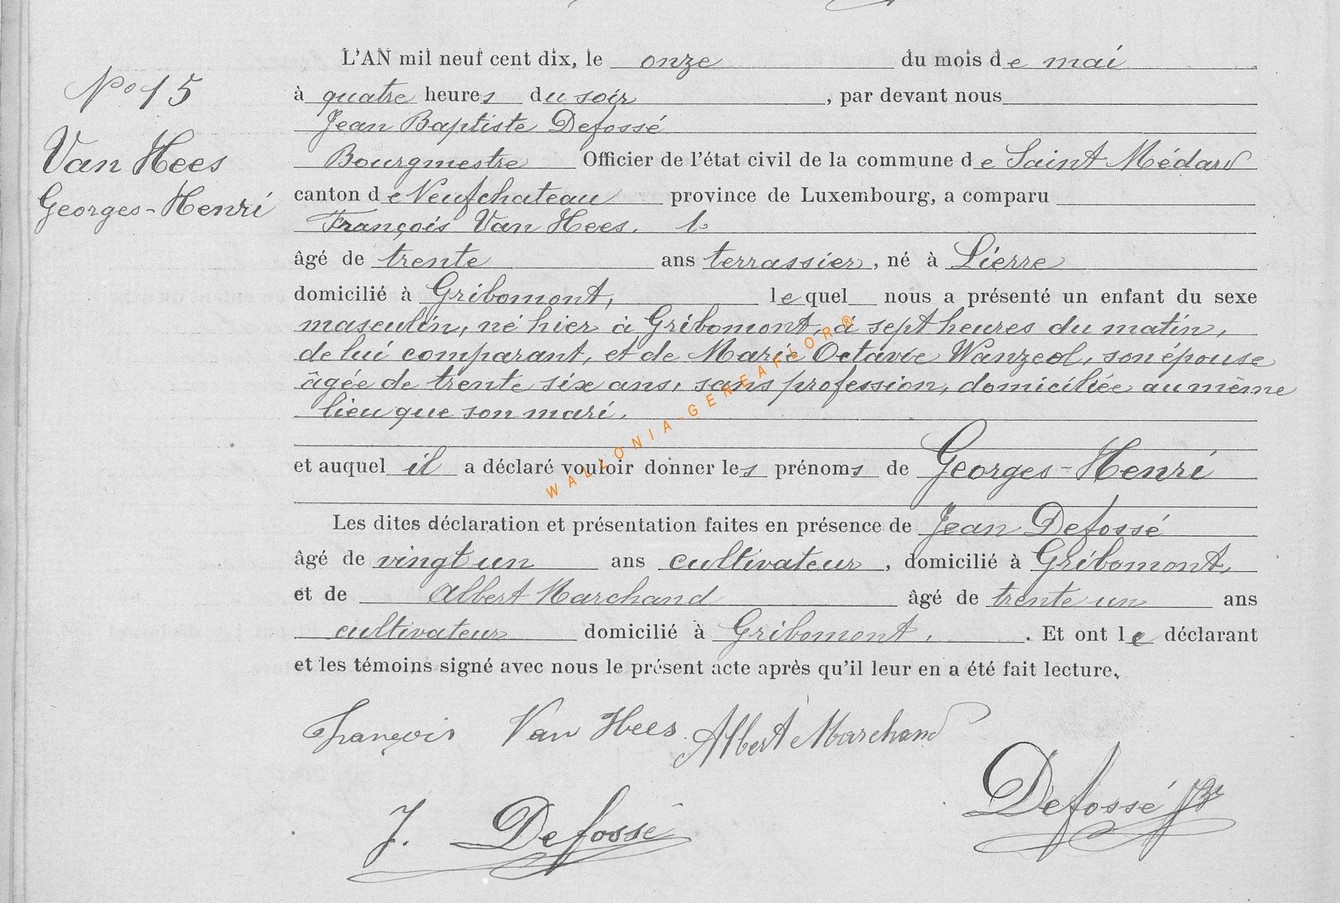 N° 15
Van Hees
Georges-Henri
L'AN mil neuf cent dix, le onze du mois de mai
à quatre heures du soir, par devant nous
Jean Baptiste Defossé
Bourgmestre Officier de l'état civil de la commune de Saint Médard
canton de Neufchateau province de Luxembourg, a comparu
François Van Hees.
âgé de trente ans terrassier, né à Lierre
domicilié à Gribomont, lequel nous a présenté un enfant du sexe
masculin, né hier à Gribomont, à sept heures du matin,
de lui comparant, et de Marie Octavie Wanzeol, son épouse
âgée de trente six ans, sans profession, domiciliée au même
lieu que son mari.
et auquel il a déclaré vouloir donner les prénoms de Georges-Henri
Les dites déclaration et présentation faites en présence de Jean Defossé
âgé de vingt un ans cultivateur, domicilié à Gribomont,
et de Albert Marchand âgé de trente un ans
cultivateur domicilié à Gribomont. . Et ont le déclarant
et les témoins signé avec nous le présent acte après qu'il leur en a été fait lecture.
François Van Hees. Albert Marchand
J. Defossé Defossé
WALLONIA-GENEAFLOR®